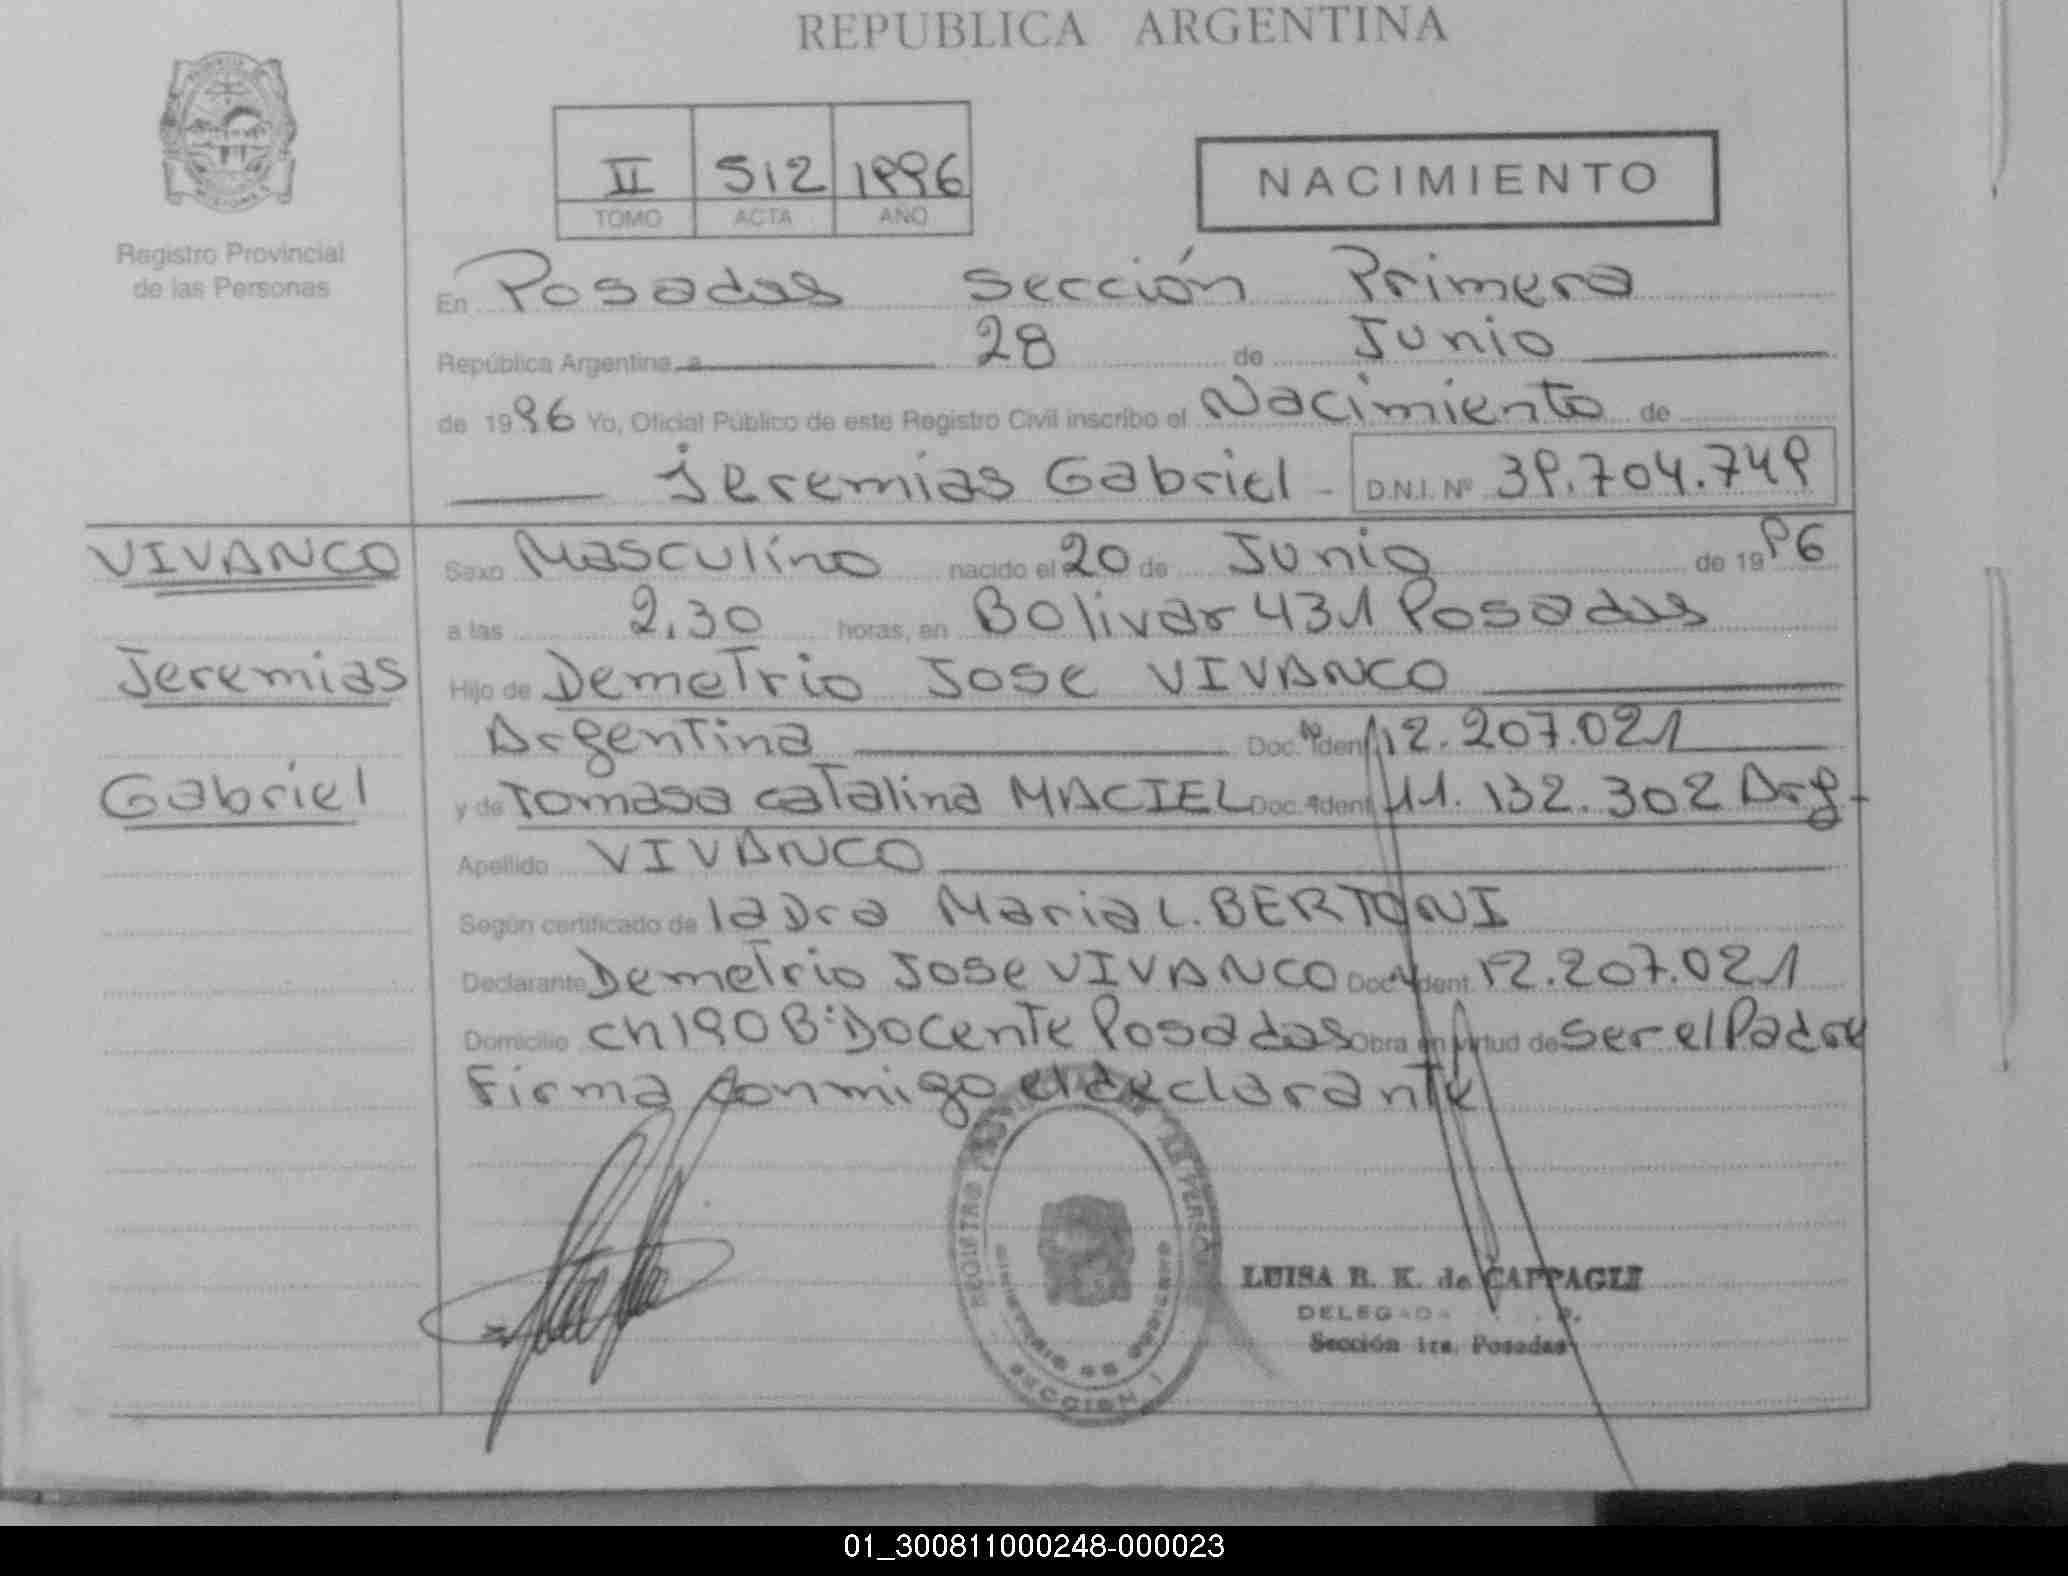 REPUBLICA ARGENTINA
Registro Provincial
de las Personas
II 512 1996
TOMO ACTA AÑO
NACIMIENTO
En Posadas Sección Primera
República Argentina, a 28 de Junio
de 1996 Yo, Oficial Público de este Registro Civil inscribo el Nacimiento de
Jeremias Gabriel - D.N.I. Nº 39.704.749
VIVANCO
Jeremias
Gabriel
Sexo Masculino nacido el 20 de Junio de 1996
a las 2.30 horas, en Bolivar 431 Posadas
Hijo de Demetrio Jose VIVANCO
Argentina Doc. Ident. 12.207.021
y de Tomasa Catalina MACIEL Doc. Ident. 11.132.302 Arg-
Apellido VIVANCO
Según certificado de la Dra Maria L. BERTONI
Declarante Demetrio Jose VIVANCO Doc. Ident. 12.207.021
Domicilio ch 190 Bº Docente Posadas Obra en virtud de ser el Padre
Firma conmigo el declarante
REGISTRO
SECCION 1
LUISA R. K. de CAPPAGLI
DELEGADA
Sección 1ra. Posadas
01_300811000248-000023